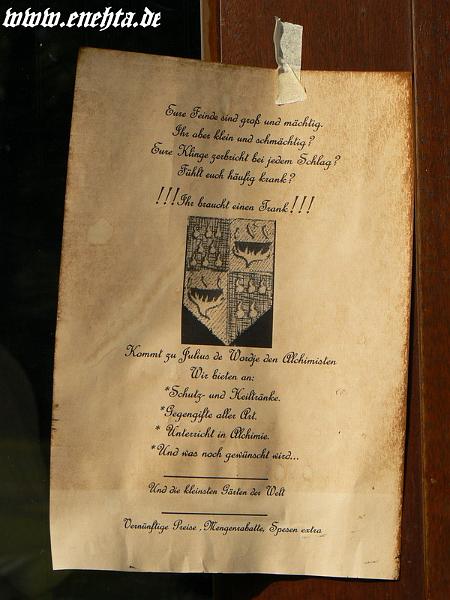 www.enehta.de
Eure Feinde sind groß und mächtig.
Ihr aber klein und schmächtig?
Eure Klinge zerbricht bei jedem Schlag?
Fühlt euch häufig krank?
!!!Ihr braucht einen Trank!!!
Kommt zu Julius de Wordje den Alchimisten
Wir bieten an:
*Schutz- und Heiltränke.
*Gegengifte aller Art.
* Unterricht in Alchimie.
*Und was noch gewünscht wird...
Und die kleinsten Gärten der Welt
Vernünftige Preise , Mengenrabatte, Spesen extra